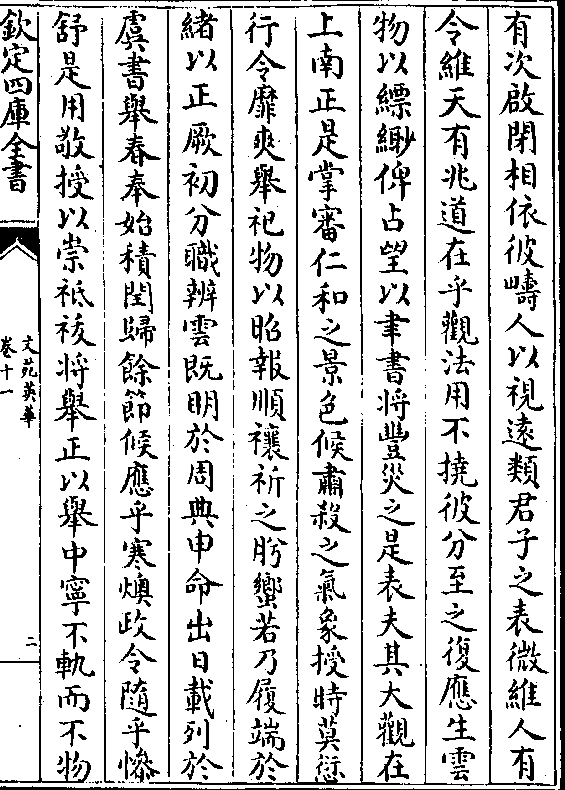 有次啟閉相依彼疇人以視遠類君子之表微維人有
令維天有兆道在乎觀法用不撓彼分至之復應生雲
物以縹緲俾占望以聿書將豐災之是表夫其大觀在
上南正是掌審仁和之景色候肅殺之氣象授時莫愆
行令靡爽舉祀物以昭報順禳祈之肹蠁若乃履端於
緒以正厥初分職辨雲既明於周典申命出日載列於
虞書舉春奉始積閏歸餘節候應乎寒燠政令隨乎慘
舒是用敬授以崇祗祓將舉正以舉中寧不軌而不物
欽定四庫全書
文苑英華
卷十一
二